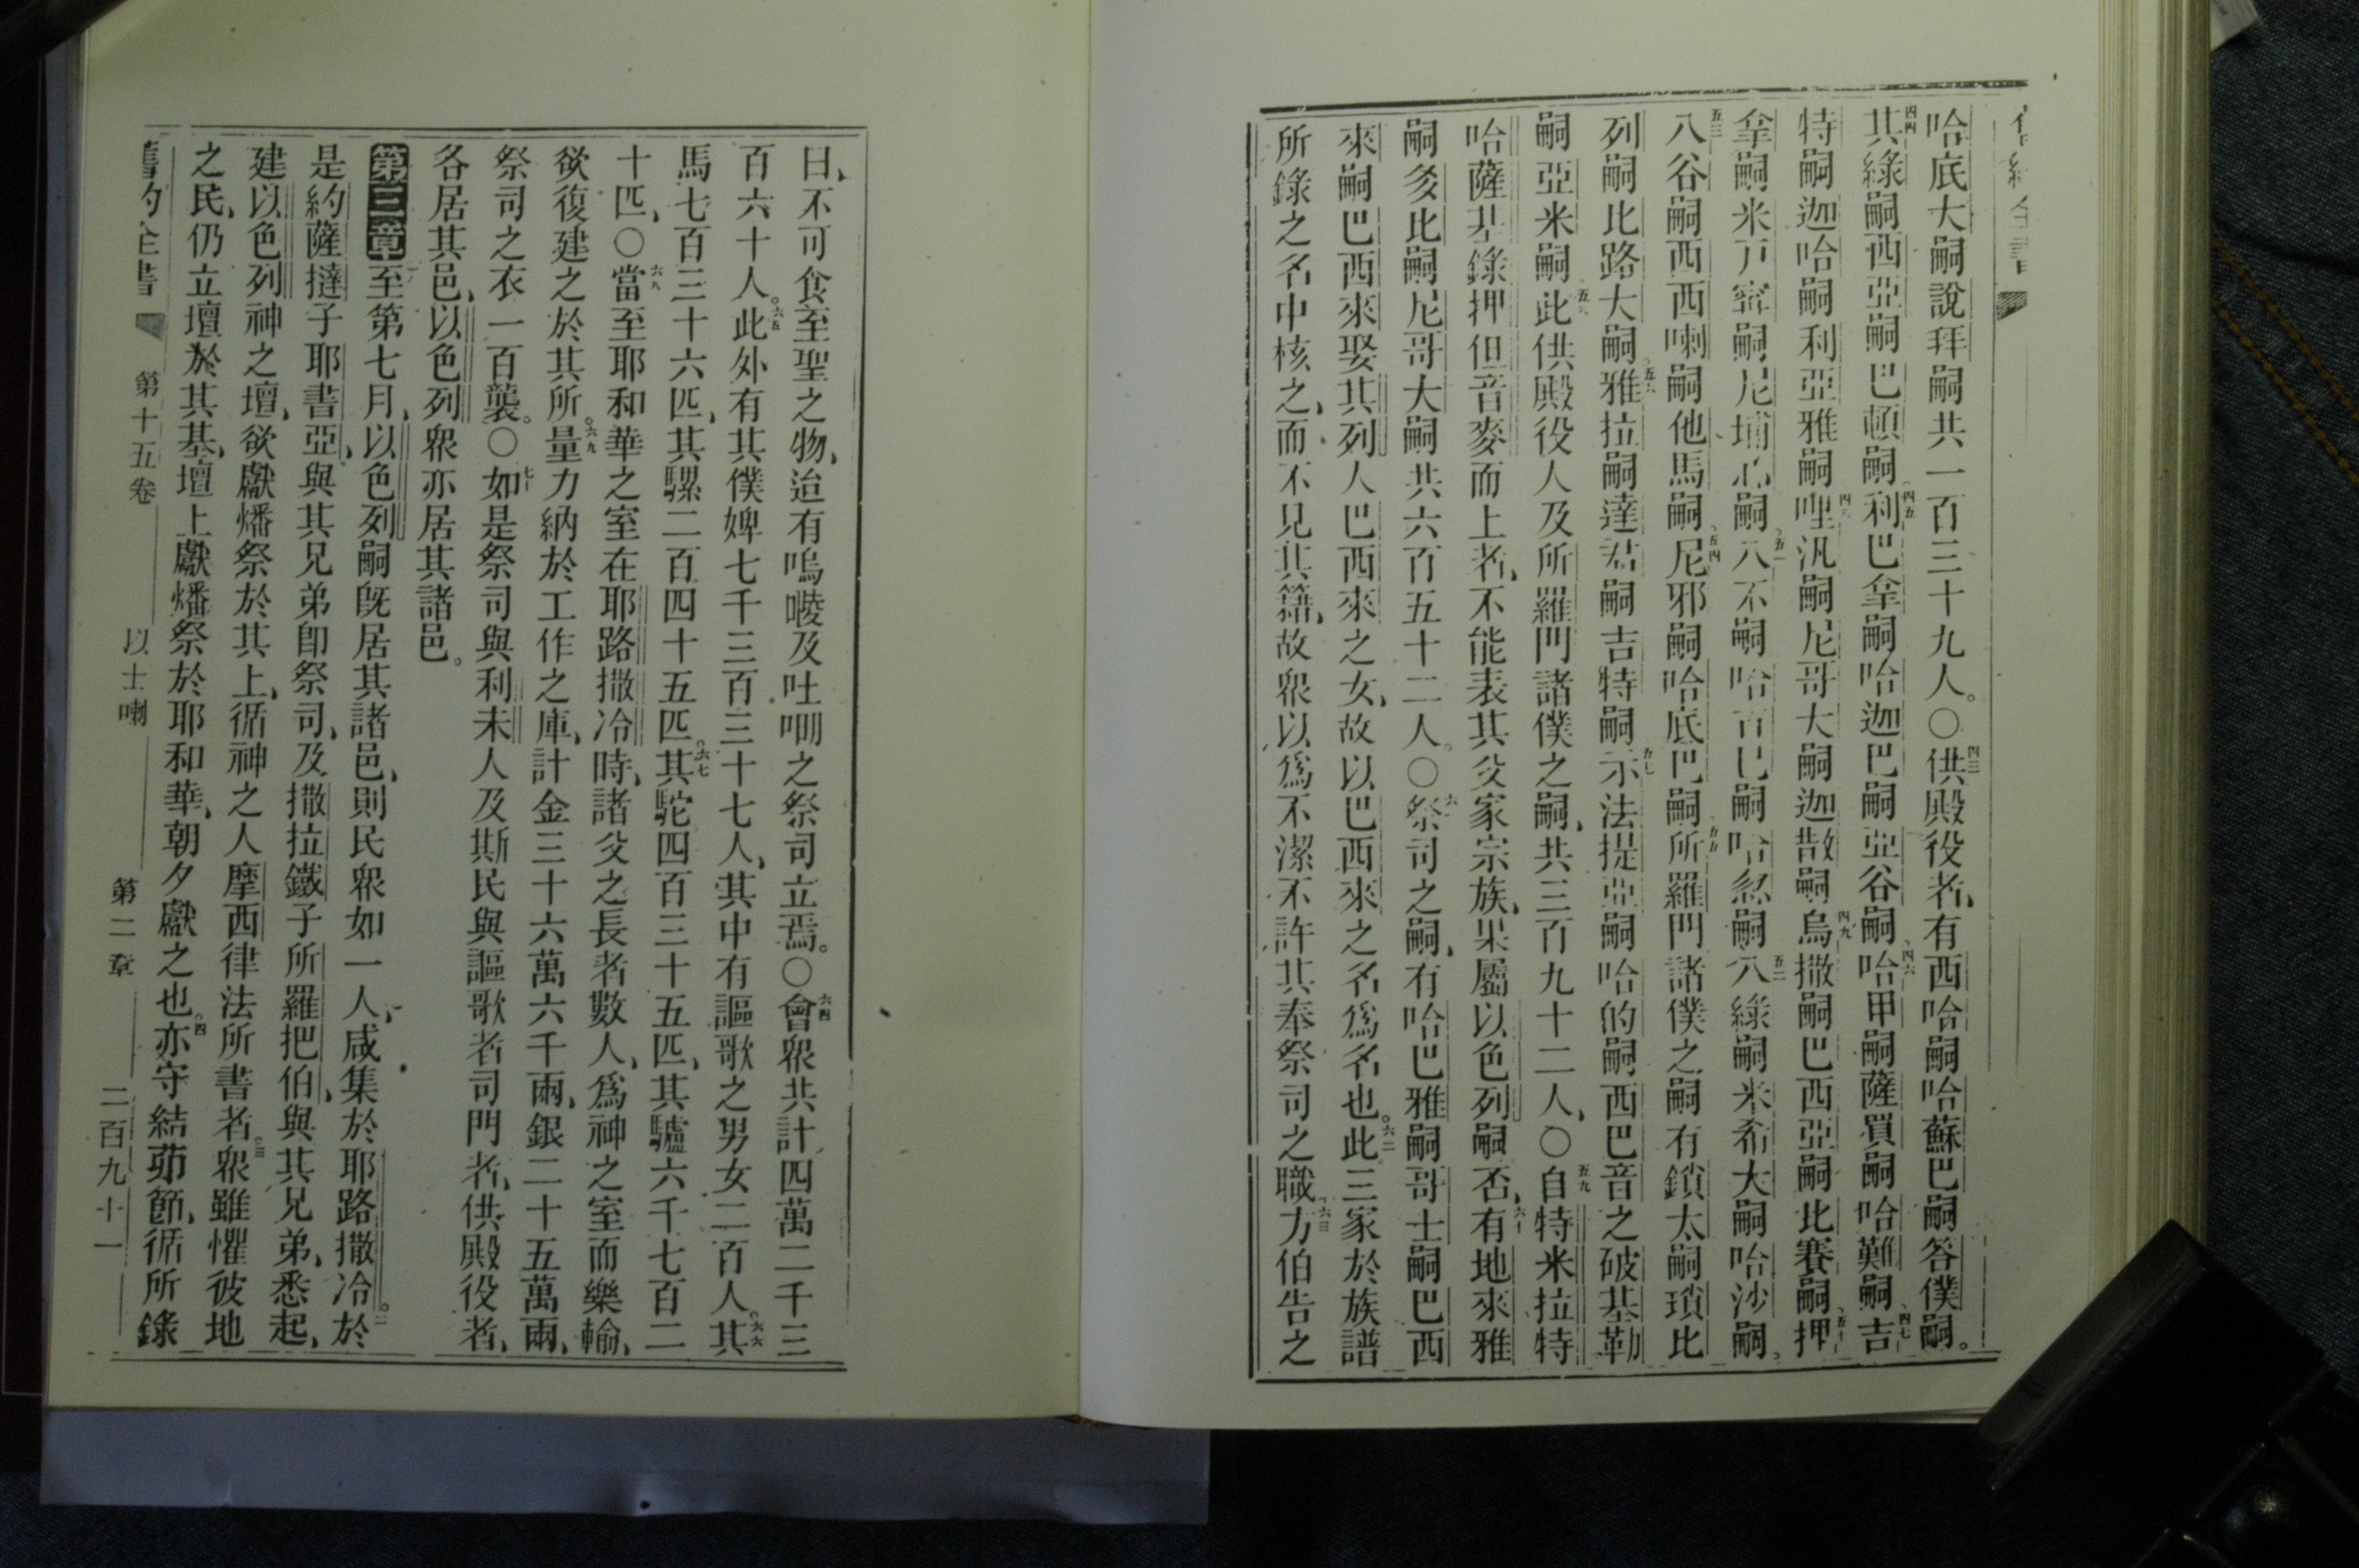 哈底大嗣說拜嗣共一百三十九人。〇四三供殿役者、有西哈嗣哈蘇巴嗣答僕嗣。
四四其綠嗣西亞嗣巴頓嗣、四五利巴拿嗣哈迦巴嗣亞谷嗣、四六哈甲嗣薩買嗣哈難嗣、四七吉
特嗣迦哈嗣利亞雅嗣四八哩汎嗣尼哥大嗣迦散嗣四九烏撒嗣巴西亞嗣比賽嗣、五十押
拿嗣米戶寗嗣尼埔心嗣、五一八不嗣哈古巴嗣哈忽嗣五二八綠嗣米希大嗣哈沙嗣。
五三八谷嗣西西喇嗣他馬嗣、五四尼邪嗣哈底巴嗣、五五所羅門諸僕之嗣有鎖太嗣瑣比
列嗣比路大嗣、五六雅拉嗣達君嗣吉特嗣五七示法提亞嗣哈的嗣西巴音之破基勒
嗣亞米嗣、五八此供殿役人及所羅門諸僕之嗣、共三百九十二人、〇五九自特米拉特
哈薩基錄押但音麥而上者、不能表其父家宗族、果屬以色列嗣否、六十有地來雅
嗣多比嗣尼哥大嗣共六百五十二人。〇六一祭司之嗣、有哈巴雅嗣哥士嗣巴西
來嗣巴西來娶其列人巴西來之女、故以巴西來之名爲名也。六二此三家於族譜
所錄之名中核之、而不見其籍、故衆以爲不潔不許其奉祭司之職、六三力伯告之
曰、不可食至聖之物、迨有嗚㖫及吐𠕇之祭司立焉。〇六四會衆共計四萬二千三
百六十人。六五此外有其僕婢七千三百三十七人、其中有謳歌之男女二百人。六六其
馬七百三十六匹、其騾二百四十五匹。六七其駝四百三十五匹、其驢六千七百二
十匹、〇六八當至耶和華之室在耶路撒冷時、諸父之長者數人、爲神之室而樂輸、
欲復建之於其所。六九量力納於工作之庫、計金三十六萬六千兩、銀二十五萬兩、
祭司之衣一百襲。〇七十如是祭司與利未人及斯民與謳歌者司門者、供殿役者、
各居其邑、以色列衆亦居其諸邑。
第三章一至第七月、以色列嗣既居其諸邑、則民衆如一人、咸集於耶路撒冷。二於
是約薩撻子耶書亞、與其兄弟卽祭司、及撒拉鐵子所羅把伯、與其兄弟、悉起、
建以色列神之壇、欲獻燔祭於其上、循神之人摩西律法所書者。三衆雖懼彼地
之民、仍立壇於其基、壇上獻燔祭於耶和華、朝夕獻之也。四亦守結茆節、循所錄
舊約全書 第十五卷 以士喇 第二章 二百九十一